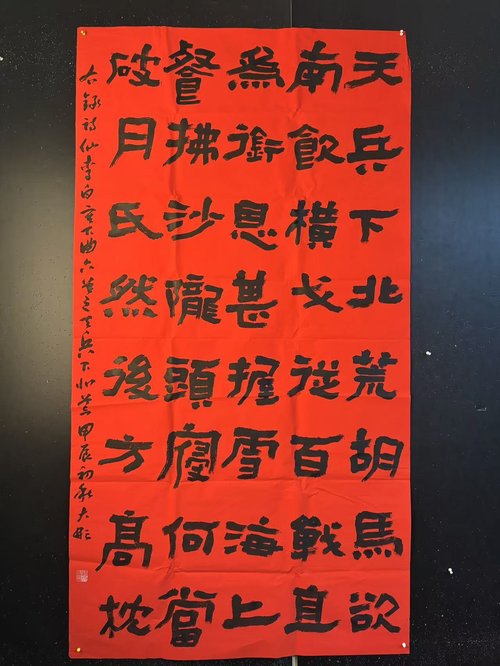 天兵下北荒胡馬欲
南飲橫戈從百戰直
爲銜恩甚握雪海上
餐拂沙隴頭寢何當
破月氏然後方髙枕
右録詩仙李白塞下曲六首之天兵下北荒甲辰初秋大